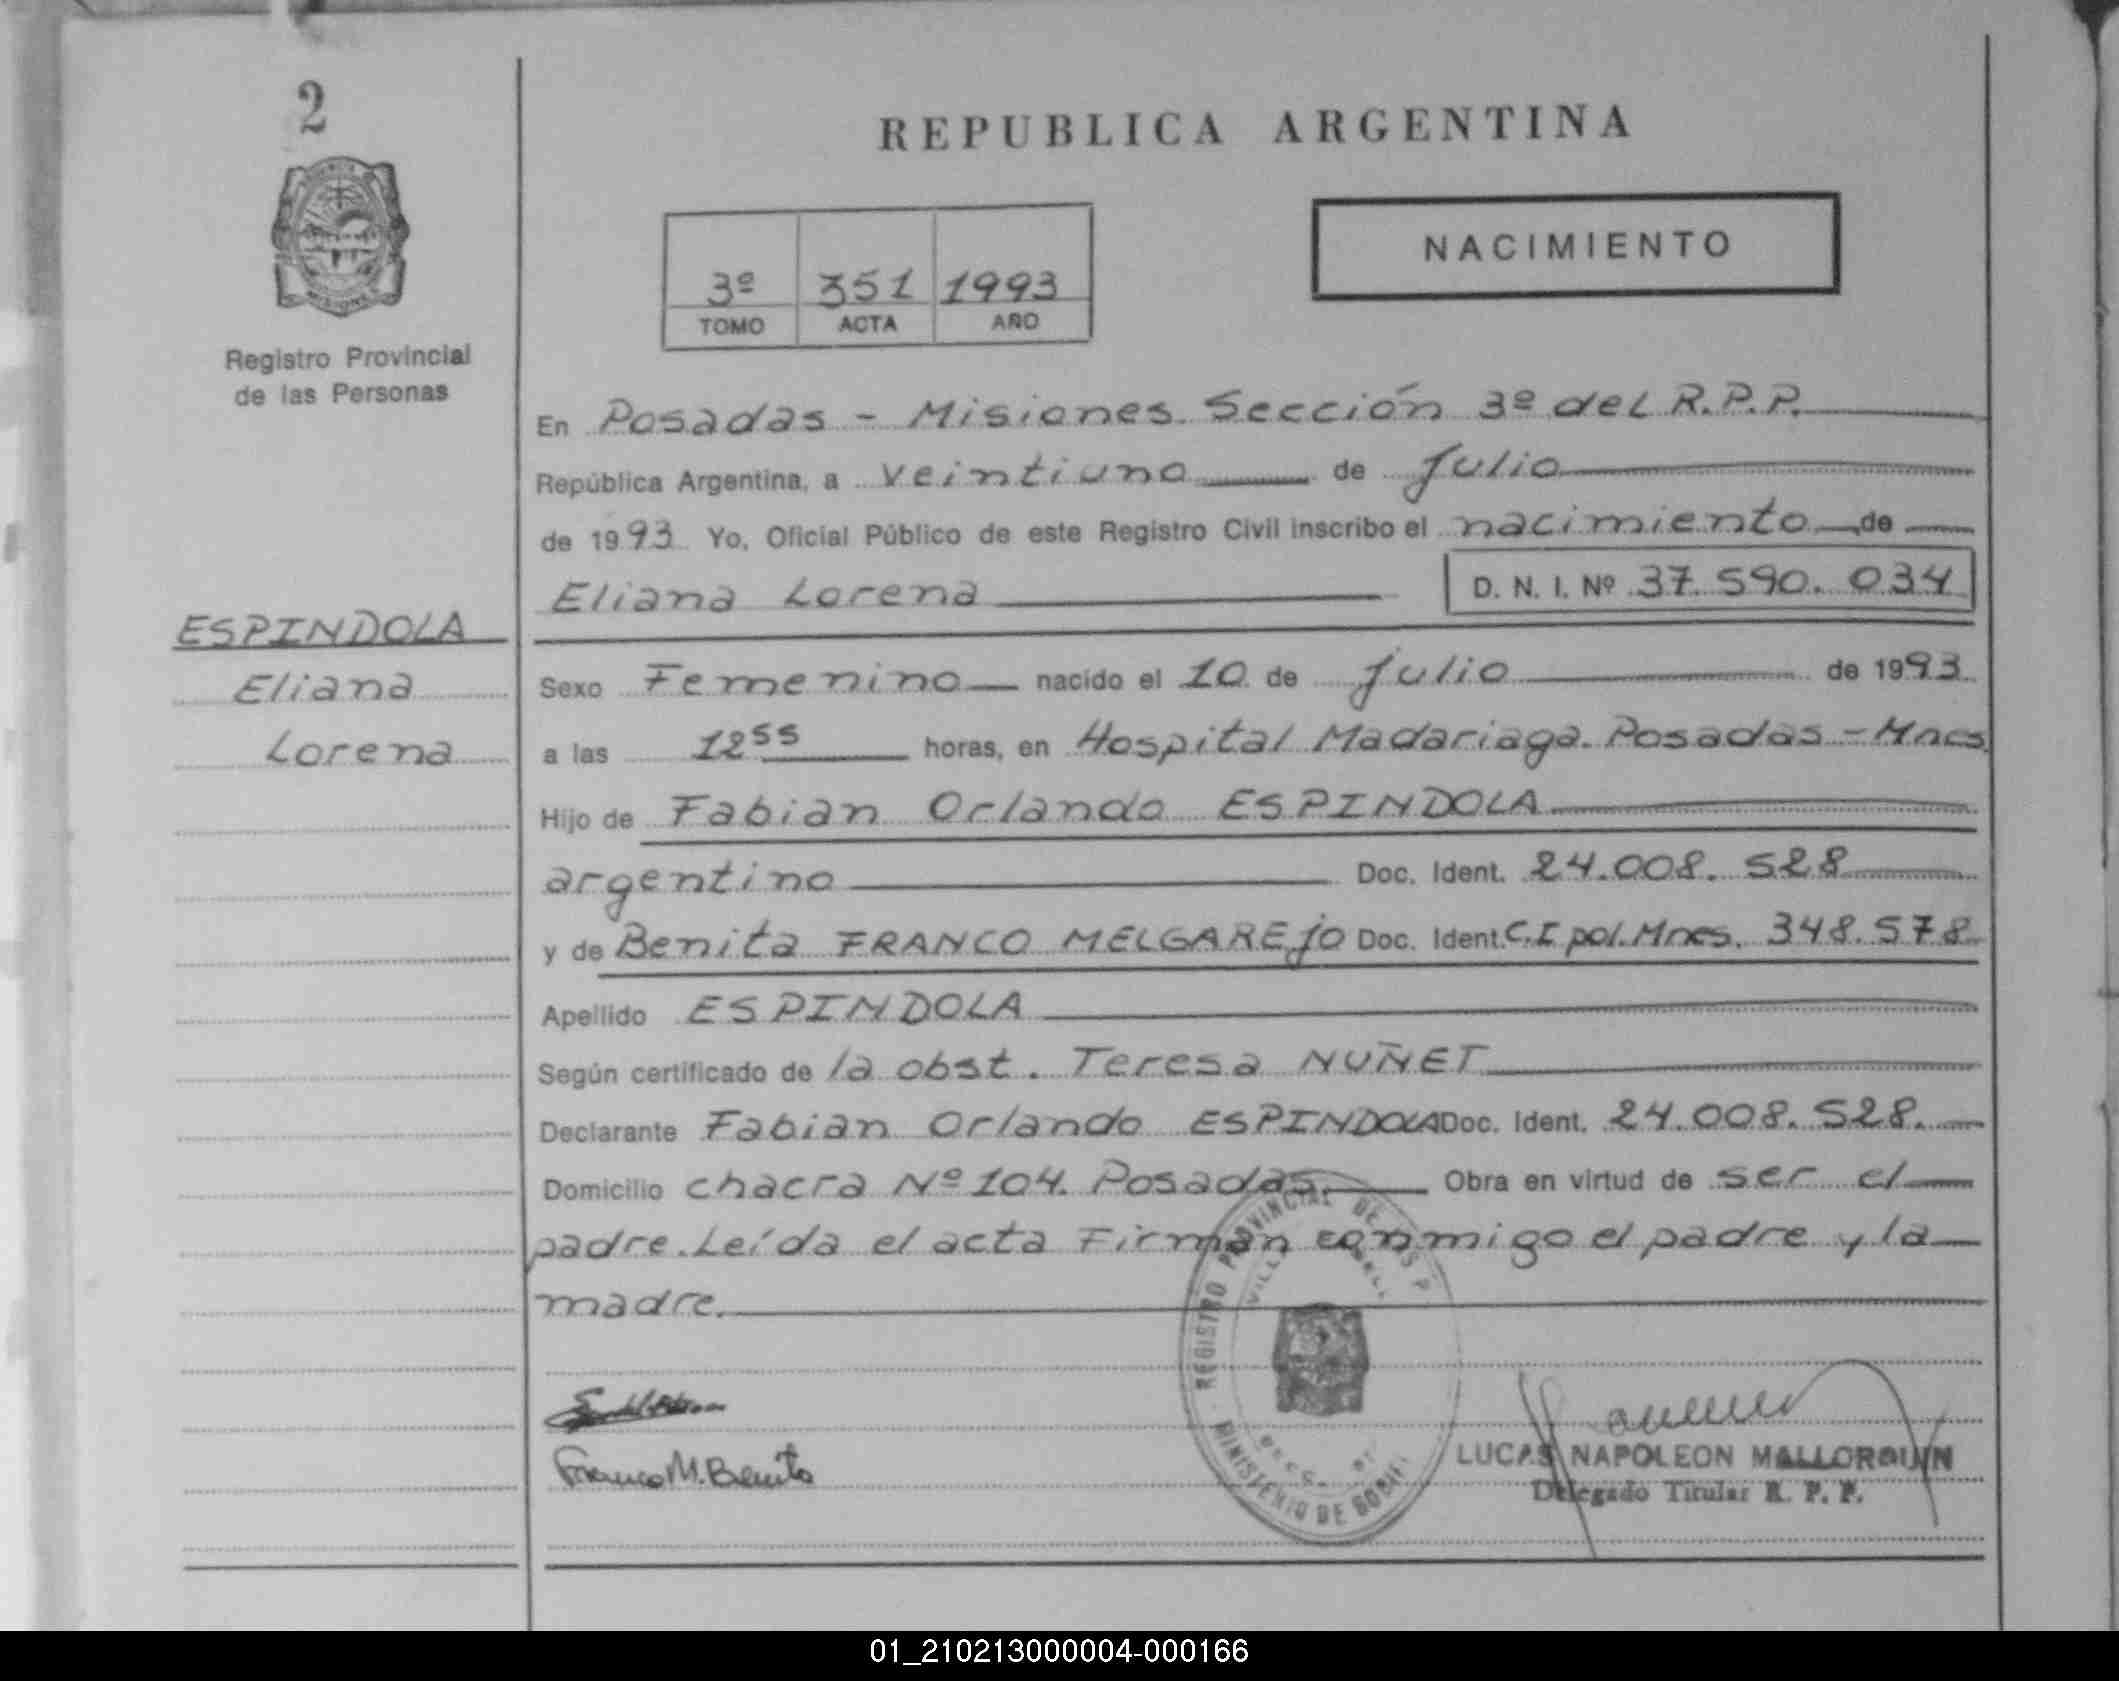 2
REPUBLICA ARGENTINA
NACIMIENTO
3º 351 1993
TOMO ACTA AÑO
Registro Provincial
de las Personas
En Posadas - Misiones. Sección 3º del R.P.P.
República Argentina, a veintiuno de Julio
de 1993 Yo, Oficial Público de este Registro Civil inscribo el nacimiento de
Eliana Lorena D. N. I. Nº 37.590.034
ESPINDOLA
Eliana
Lorena
Sexo Femenino nacido el 10 de Julio de 1993
a las 12 55 horas, en Hospital Madariaga. Posadas - Mnes
Hijo de Fabian Orlando ESPINDOLA
argentino Doc. Ident. 24.008.528
y de Benita FRANCO MELGAREjO Doc. Ident. C.I pol. Mnes. 348.578
Apellido ESPINDOLA
Según certificado de la obst. Teresa NUÑET
Declarante Fabian Orlando ESPINDOLA Doc. Ident. 24.008.528.
Domicilio chacra Nº 104. Posadas. Obra en virtud de ser el
padre. Leída el acta Firman conmigo el padre y la
madre.
REGISTRO PROVINCIAL DE LAS P
MINISTERIO DE GOBIE
Franco M. Benita
LUCAS NAPOLEON MALLORQUIN
Delegado Titular R. P. P.
01_210213000004-000166